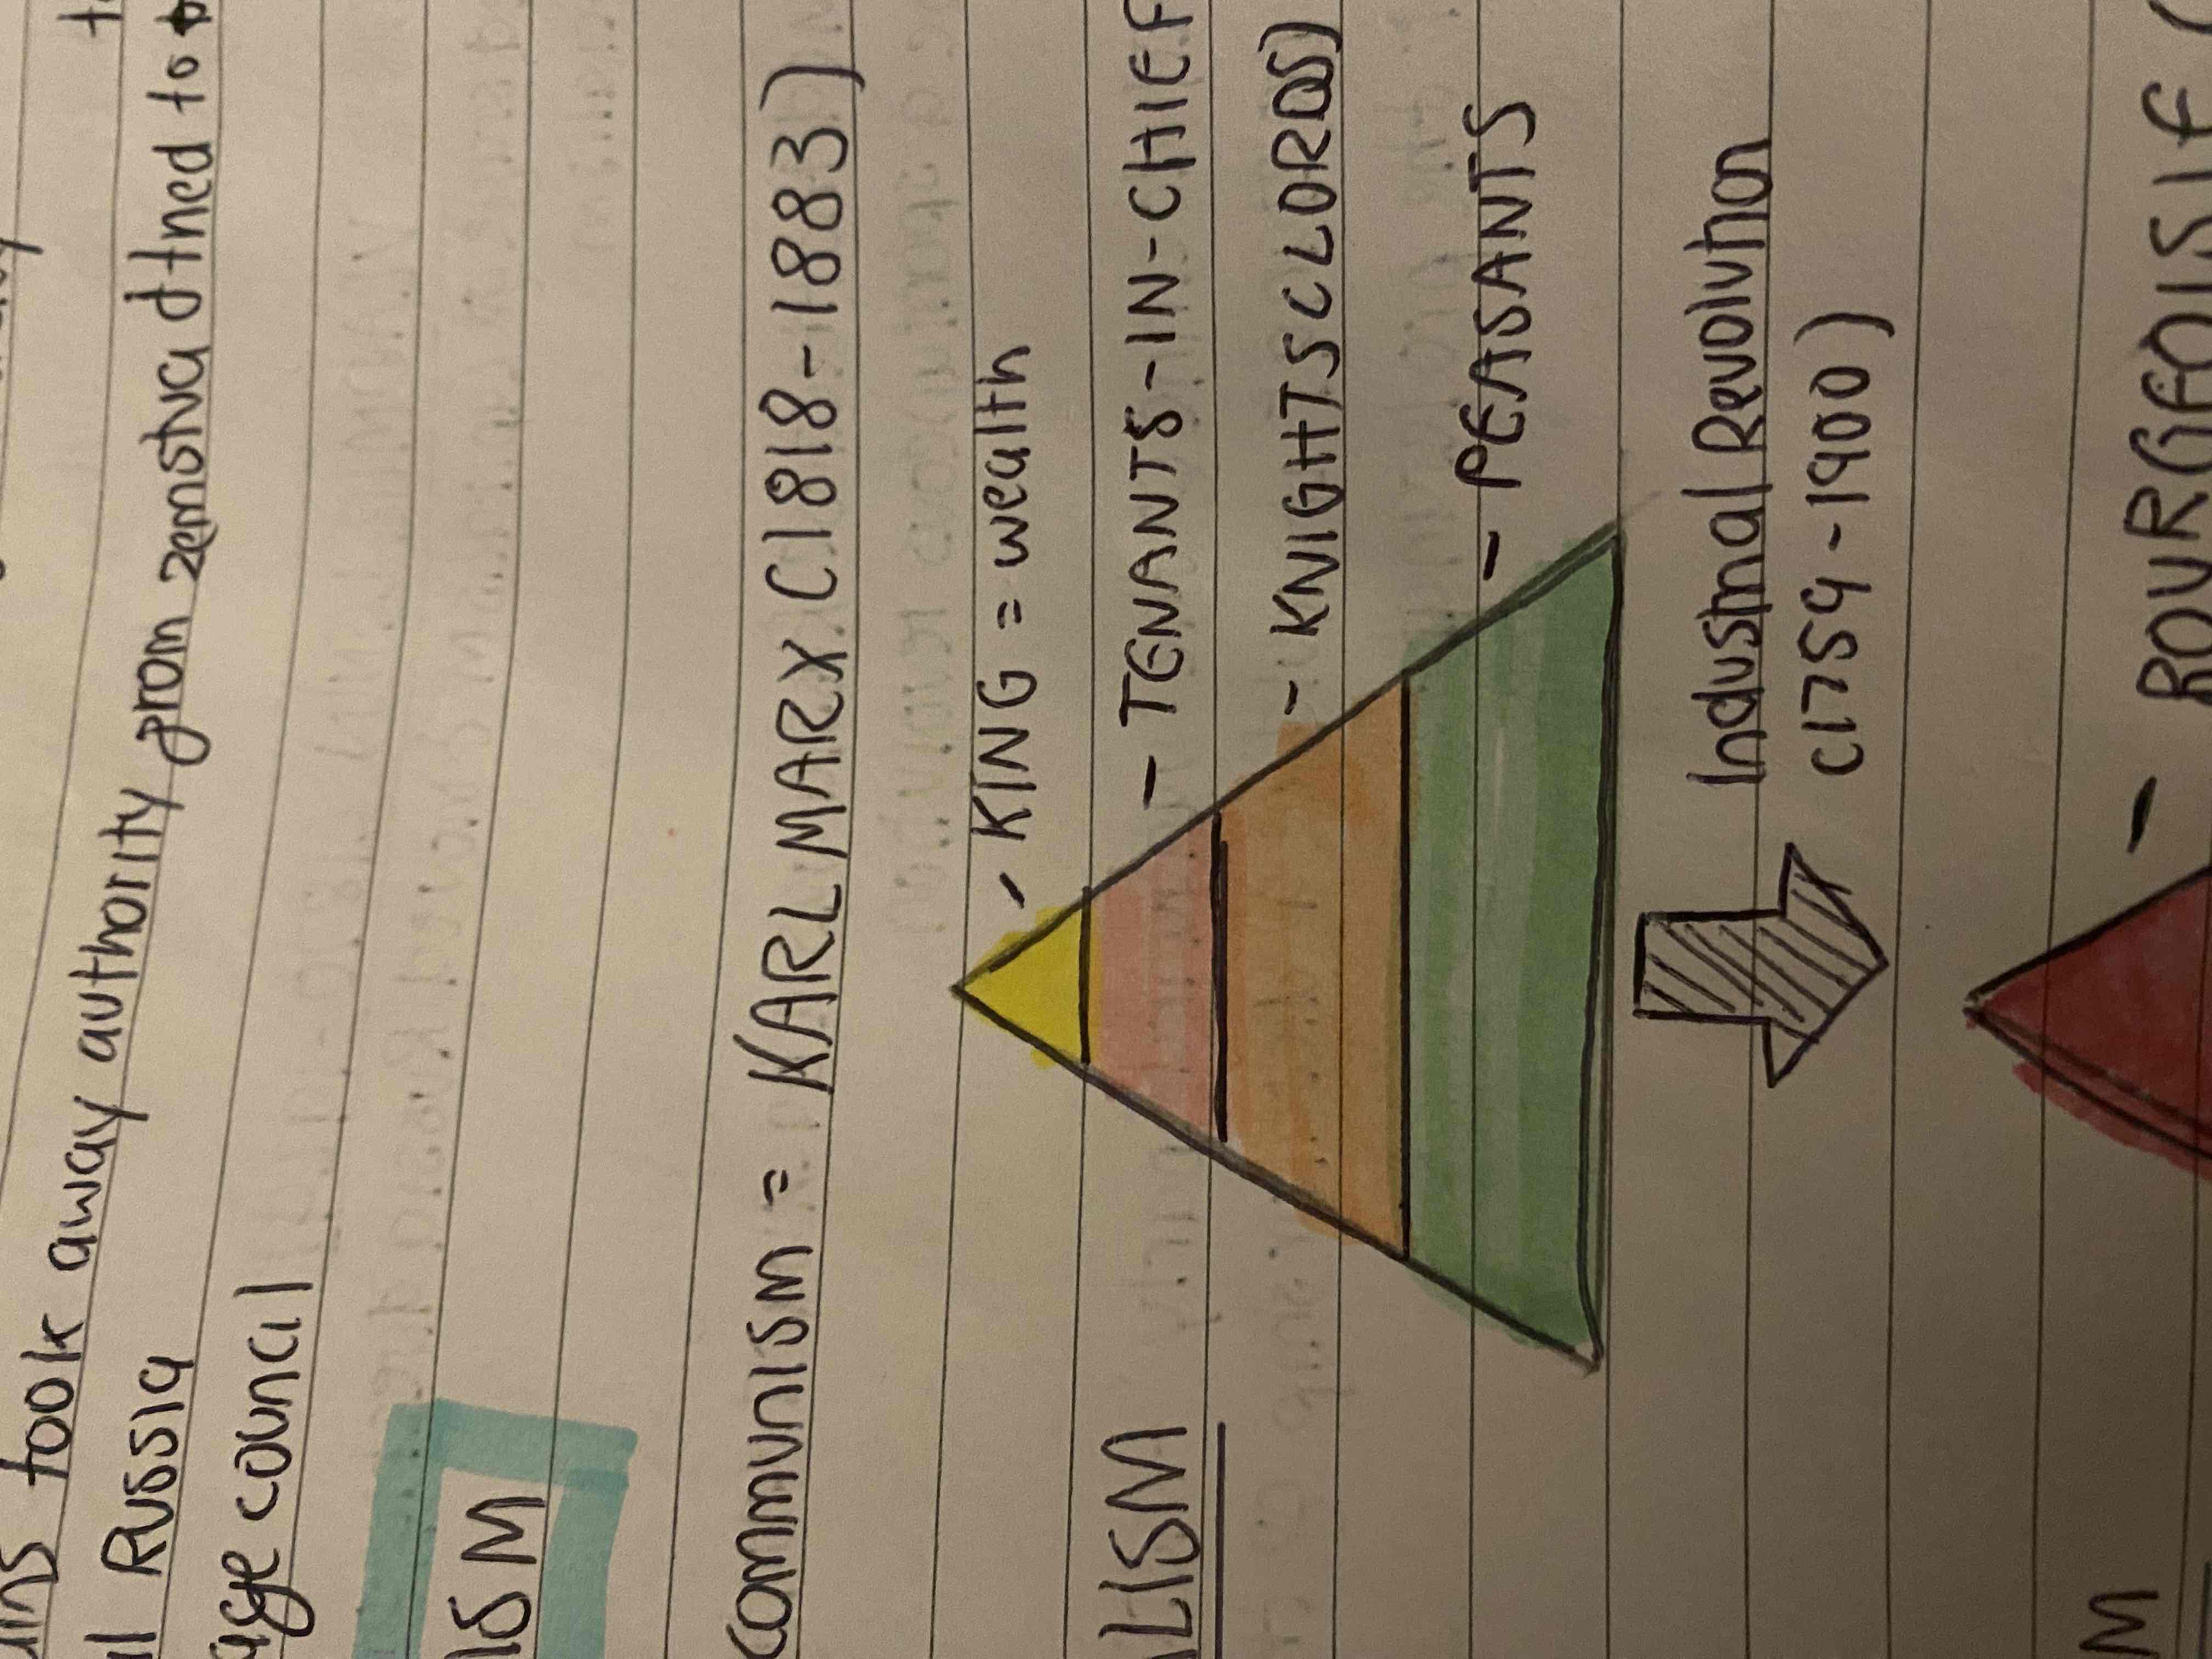 took away authority from zemstva dtned to
Russia
council
ISM
communism = KARL MARX (1818-1883)
- KING = wealth
LISM - TENANTS-IN-CHIEF
- KNIGHTS (LORDS)
- PEASANTS
Industrial Revolution
(1759-1900)
M - BOURGEOISIE (